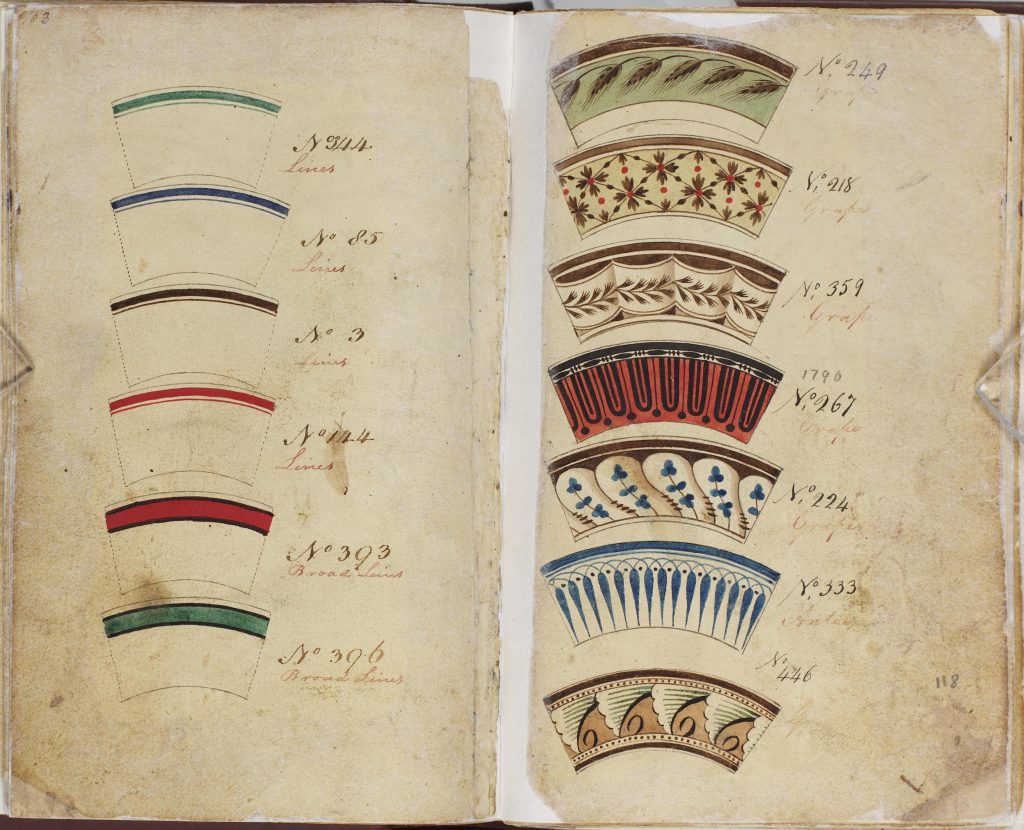 103
No 344
Lines
No 85
Lines
No 3
Lines
No 144
Lines
No 393
Broad Lines
No 396
Broad Lines
No. 249
Grape
No. 218
Grape
No. 359
Grape
1790
No. 267
Grape
No. 224
Grape
No. 333
No. 446
118